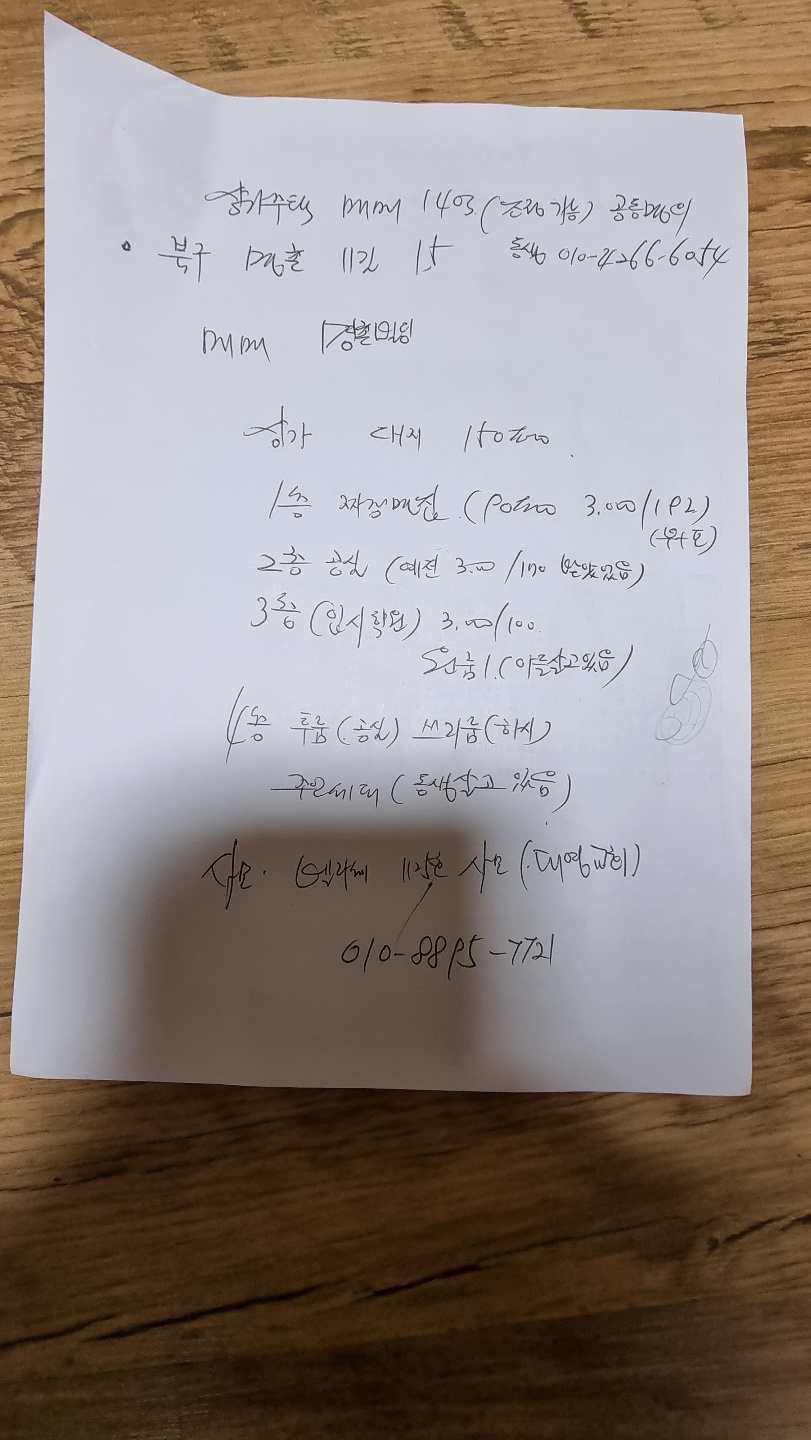 상가주택 매매 14억 (조정가능) 공동명의
· 북구 명촌 11길 15 동생 010-4266-6054
매매 빌딩
상가 대지 150평
1층 짜장면집 (90평 3.000/192)
2층 공실 (예전 3.00/170 받았있음)
3층 (입시학원) 3.00/100.
원룸1. (아들살고있음)
4층 투룸 (공실) 쓰리룸 (하시)
주인세대 (동생살고 있음)
사모. 사모 (대영교회)
010-8895-7721